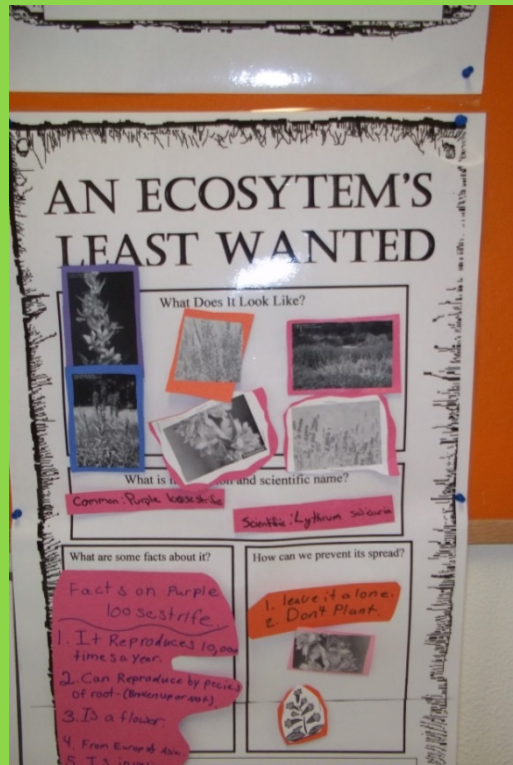 AN ECOSYTEM'S
LEAST WANTED
What Does It Look Like?
What is and scientific name?
Common: Purple loosestrife
Scientific: Lythrum salicaria
What are some facts about it?
Facts on Purple
loosestrife.
1. It Reproduces 10,000
times a year.
2. Can Reproduce by
of root-(Broken up or not)
3. Is a flower.
4. From Europe & Asia
5. Is
How can we prevent its spread?
1. leave it alone.
2. Don't Plant.